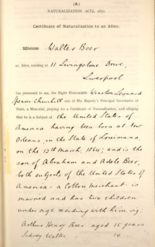 (A)
NATURALIZATION ACT, 1870.
Certificate of Naturalization to an Alien.
Whereas Walter Beer
an Alien, residing at 11 Livingstone Drive,
Liverpool
has presented to me, the Right Honourable Winston Leonard
Spencer Churchill one of His Majesty's Principal Secretaries of
State, a Memorial, praying for a Certificate of Naturalization, and alleging
that he is a Subject of the United States of
America having been born at New
Orleans in the State of Louisiana
on the 13th March 1864; and is the
son of Abraham and Adele Beer,
both subjects of the United States of
America - a Cotton Merchant - is
married and has two children
under age residing with him, viz
Arthur Henry Beer aged 15 years
Sidney